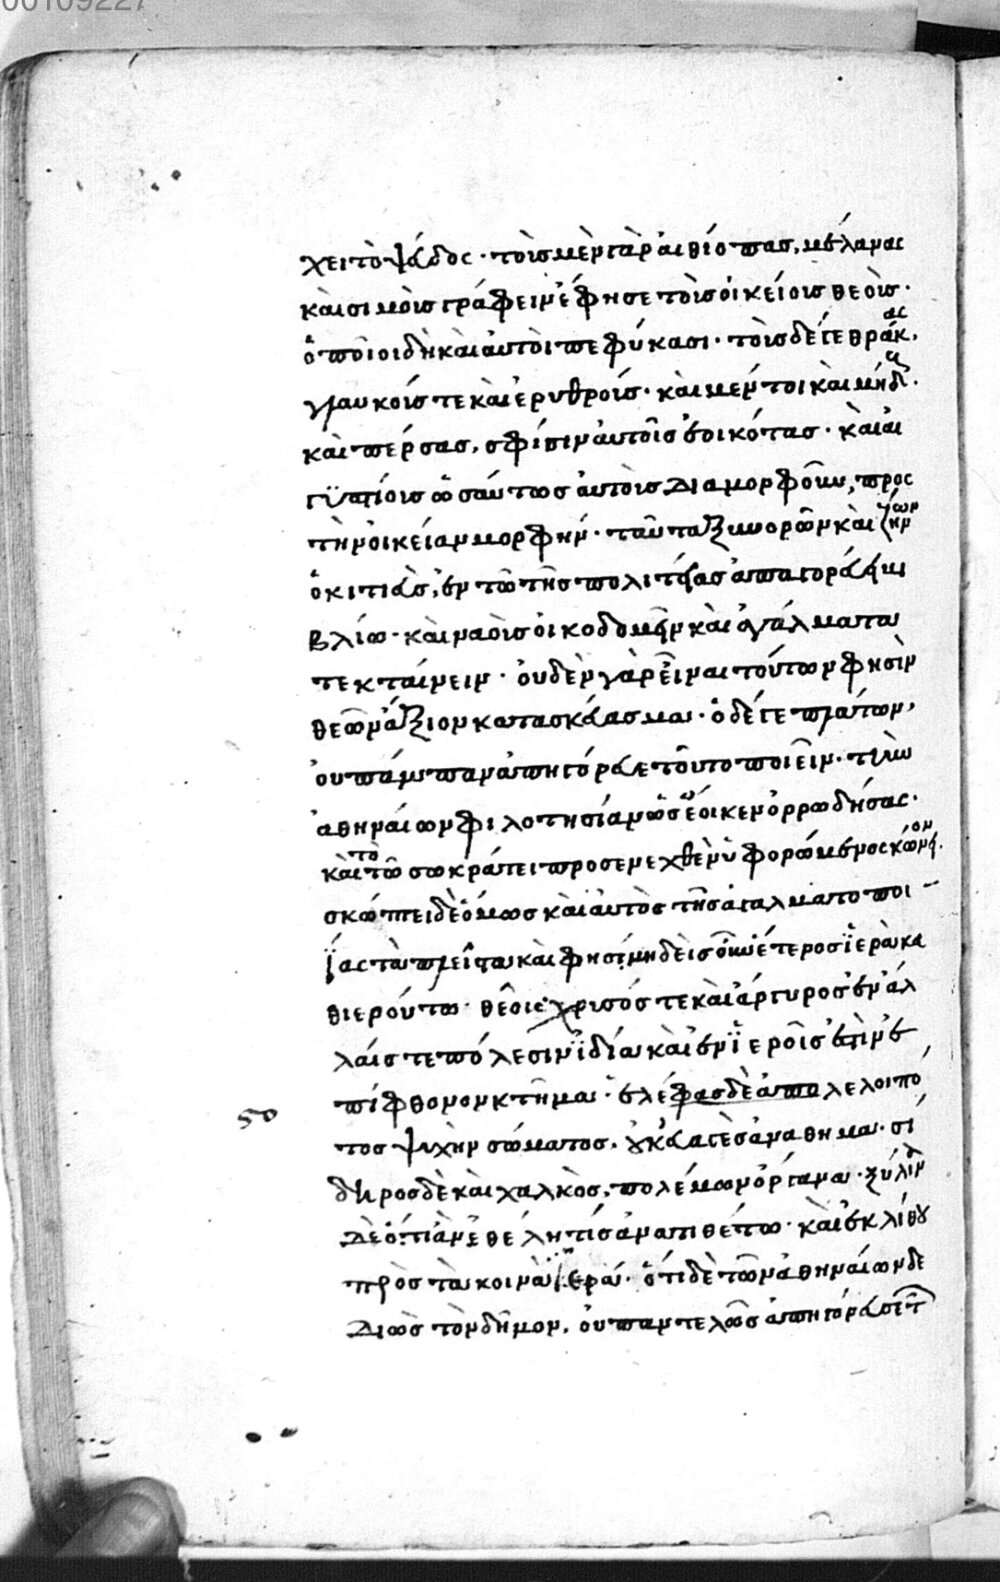 00109227
χει τὸ ψεύδος· τοὺς μὲν γὰρ αἰθίοπας, μέλανας
καὶ σιμοὺς γράφειν ἔφησε τοὺς οἰκείους θεούς·
ὁποῖοι δὴ καὶ αὐτοὶ πεφύκασι· τοὺς δέ γε θρᾷκας,
γλαυκούς τε καὶ ἐρυθρούς· καὶ μέντοι καὶ μήδους·
καὶ πέρσας, σφίσιν αὐτοῖς ἐοικότας· καὶ αἰ
γυπτίους ὡσαύτως αὐτοὺς διαμορφοῦν, προς
τὴν οἰκείαν μορφήν· ταῦτα ξυνορῶν καὶ ζήνων
ὁ κιτιεὺς, ἐν τῷ τῆς πολιτείας ἀπαγορεύει
βλίω· καὶ ναοὺς οἰκοδομεῖν καὶ ἀγάλματα
τεκταίνειν· οὐδὲν γὰρ εἶναι τούτων φησὶν
θεῶν ἄξιον κατασκεύασμα· ὁ δέ γε πλάτων,
οὐ πάμπαν ἀπηγόρευε τοῦτο ποιεῖν· τὴν
ἀθηναίων φιλοτησίαν ὡς ἔοικεν ὀρρωδήσας·
καὶ τὸ τῶ σωκράτει προσενεχθὲν ὑφορώμενος κώνειον·
σκώπτει δὲ ὅμως καὶ αὐτὸς τῆς ἀγαλματοποι
ΐας τὰ πλεῖστα καὶ φησί, μηδεὶς οὖν ἑτέρως ἱερὰ κα
θιερούτω θεοῖς· χρυσός τε καὶ ἄργυρος ἐν ἄλ
λαις τε πόλεσιν ἰδία καὶ ἐν ἱεροῖς ἐστὶν ἐ
πίφθονον κτῆμα· ἐλέφας δὲ ἀπολελοιπό
50
τος ψυχὴν σώματος, οὐκ εὐαγὲς ἀνάθημα· σί
δηρος δὲ καὶ χαλκὸς, πολέμων ὄργανα· ξύλινον
δὲ ὅ,τι ἂν ἐθέλη τὶς ἀνατιθέτω· καὶ ἐκ λίθου
πρὸς τὰ κοινὰ ἱερά· ὅτι δὲ τῶν ἀθηναίων δε
διὼς τὸν δῆμον, οὐ παντελῶς ἀπηγόρευσε τ